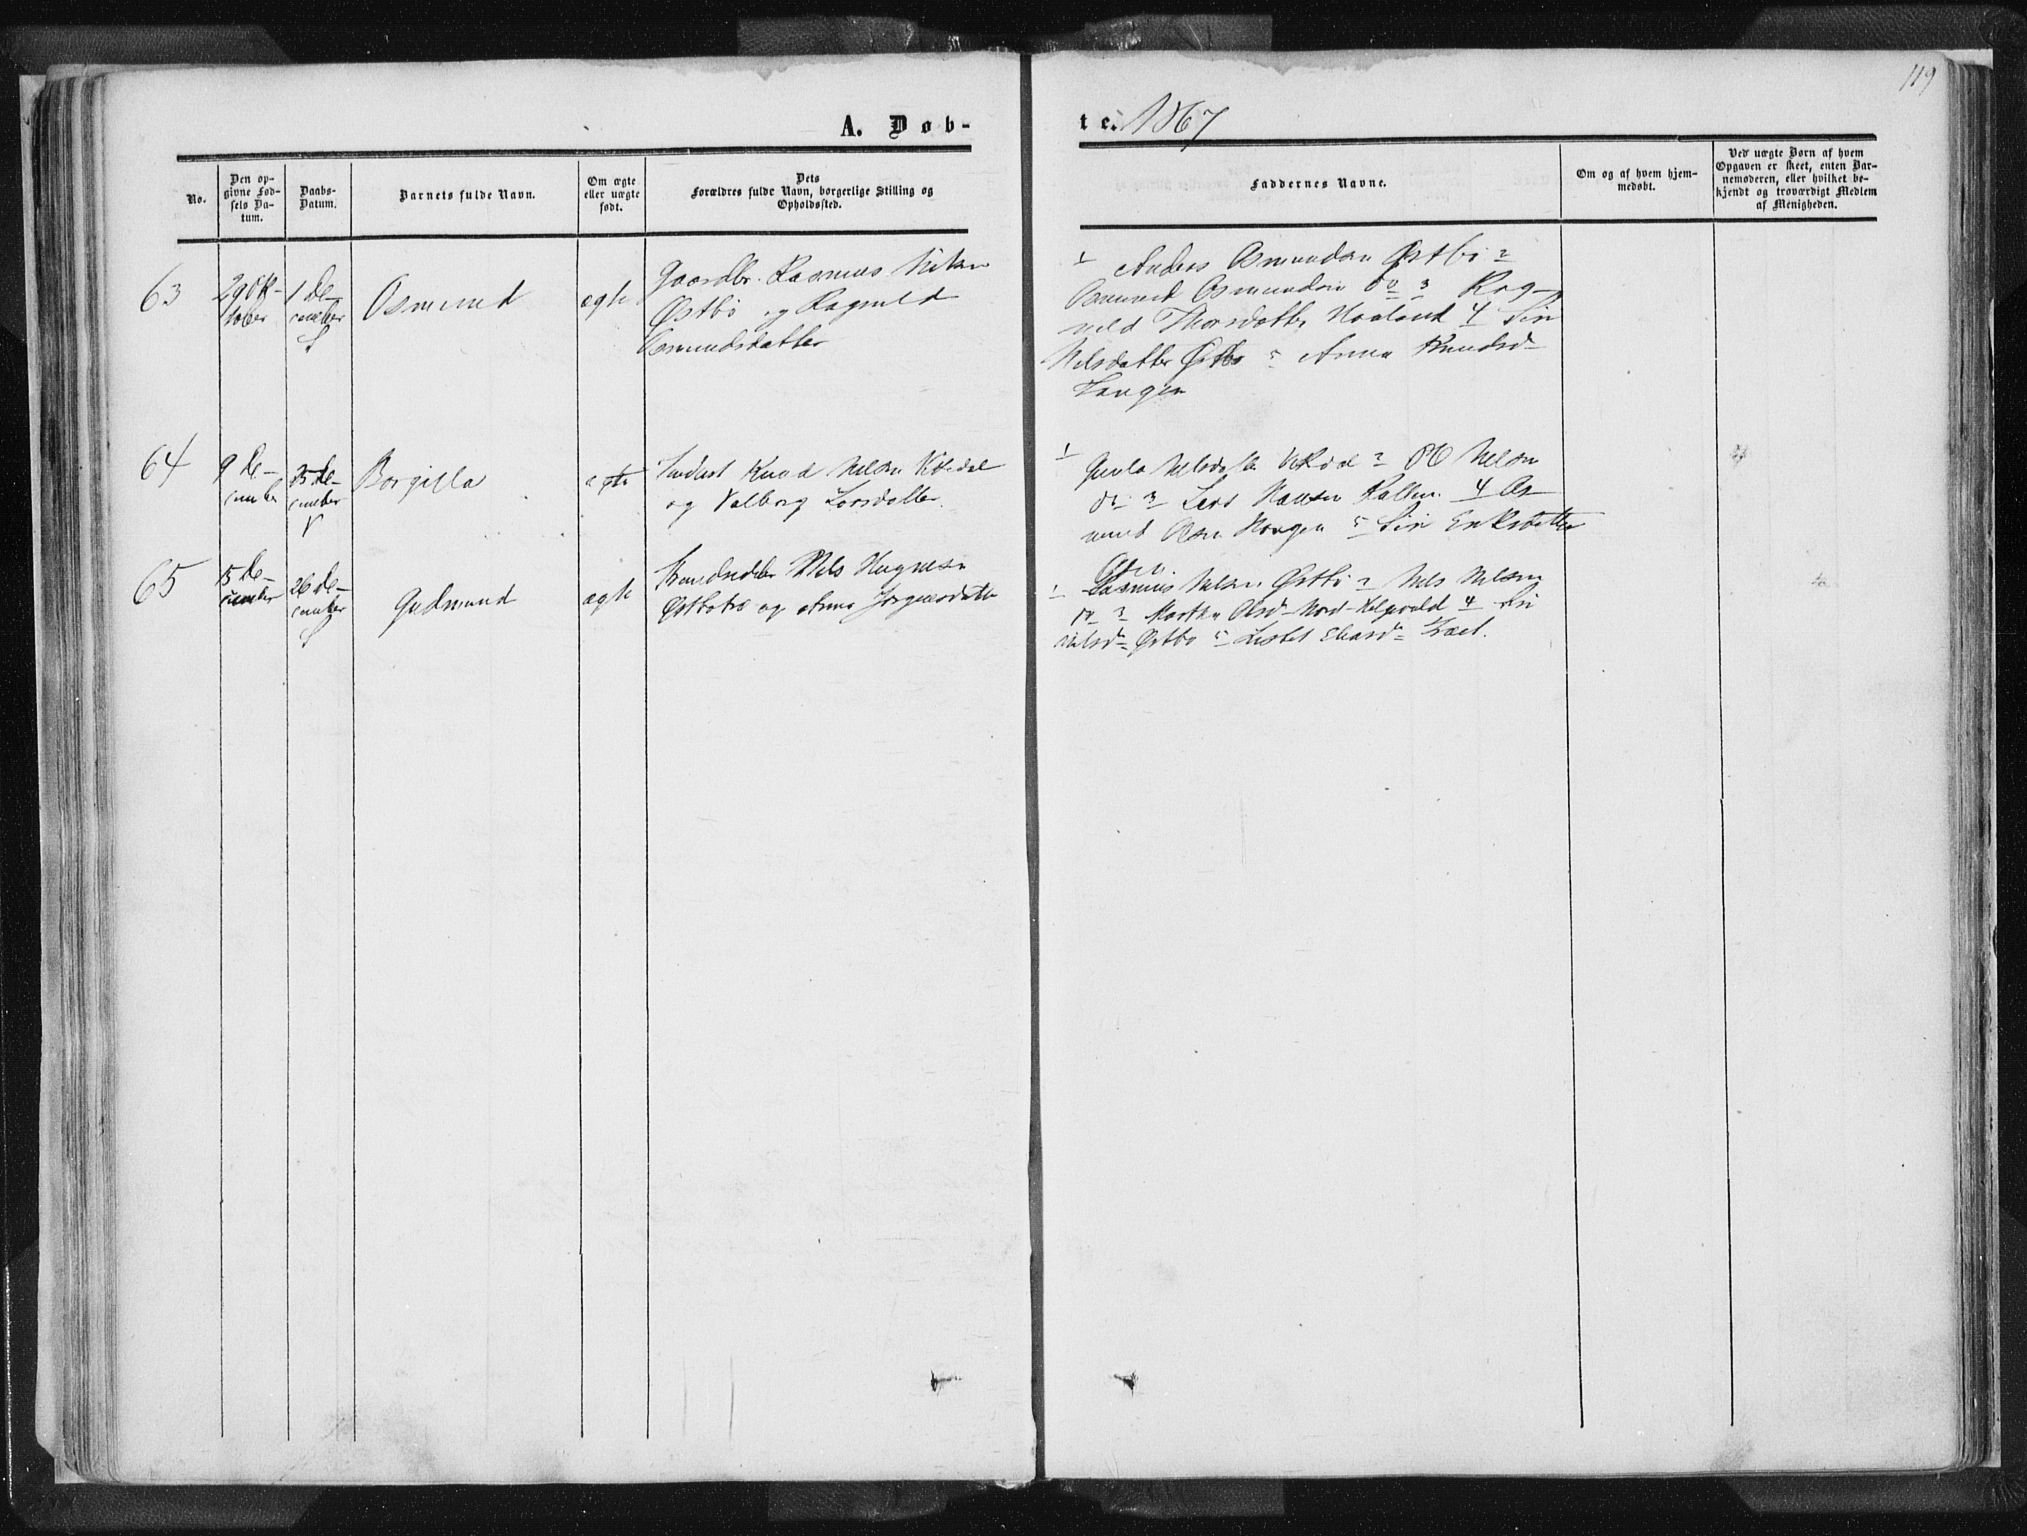 119
A. Døb-
te. 1867
No.
Den op-
givne Fød-
sels Da-
tum.
Daabs-
Datum.
Barnets fulde Navn.
Om ægte
eller uægte
født.
Dets
Forældres fulde Navn, borgerlige Stilling og
Opholdssted.
Faddernes Navne.
Om og af hvem hjem-
medøbt.
Ved uægte Børn af hvem
Opgaven er skeet, enten Bar-
nemoderen, eller hvilket be-
kjendt og troværdigt Medlem
af Menigheden.
63
29 Ok-
tober
1 De-
cember
S
Osmund
ægte
Gaardbr. Rasmus Nilsen
Østbø og Ragnild
Osmundsdatter
1 Anders Osmundsen Østbø 2
Osmund Osmundsen do 3 Rag-
nild Thorsdatter Haaland 4 Siri
Nilsdatter Østbø 5 Anna Knudsd-
Haugen
64
9 De-
cember
25 De-
cember
V
Borgilla
ægte
Knud Nilsen
og Valborg Larsdatter.
1 Gunla Nilsdatter 2 Ole Nilsen
do 3 Lars Hansen 4 As-
mund Olsen Haugen 5 Siri Eriksdatter
65
15 De-
cember
26 De-
cember
S
Gudmund
ægte
Nils Magnesen
Østbø og Anna Jørgensdatter
1 Rasmus Nilsen Østbø 2 Nils Nilsen
do 3 Martha Olsd- Nord- 4 Siri
Nilsd- Østbø 5